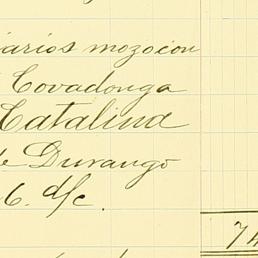 iarios mozo con
Covadonga
Catalina
de Durango
6. d/c.
74